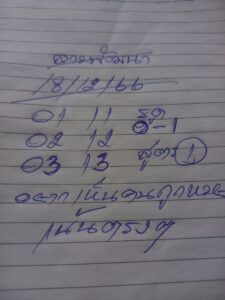 ลาวพัฒนา
18/12/66
01 11 รูด
02 12 0-1
03 13 สูตร 1
อยากเห็นคนถูกหวย
เน้นตรงๆ